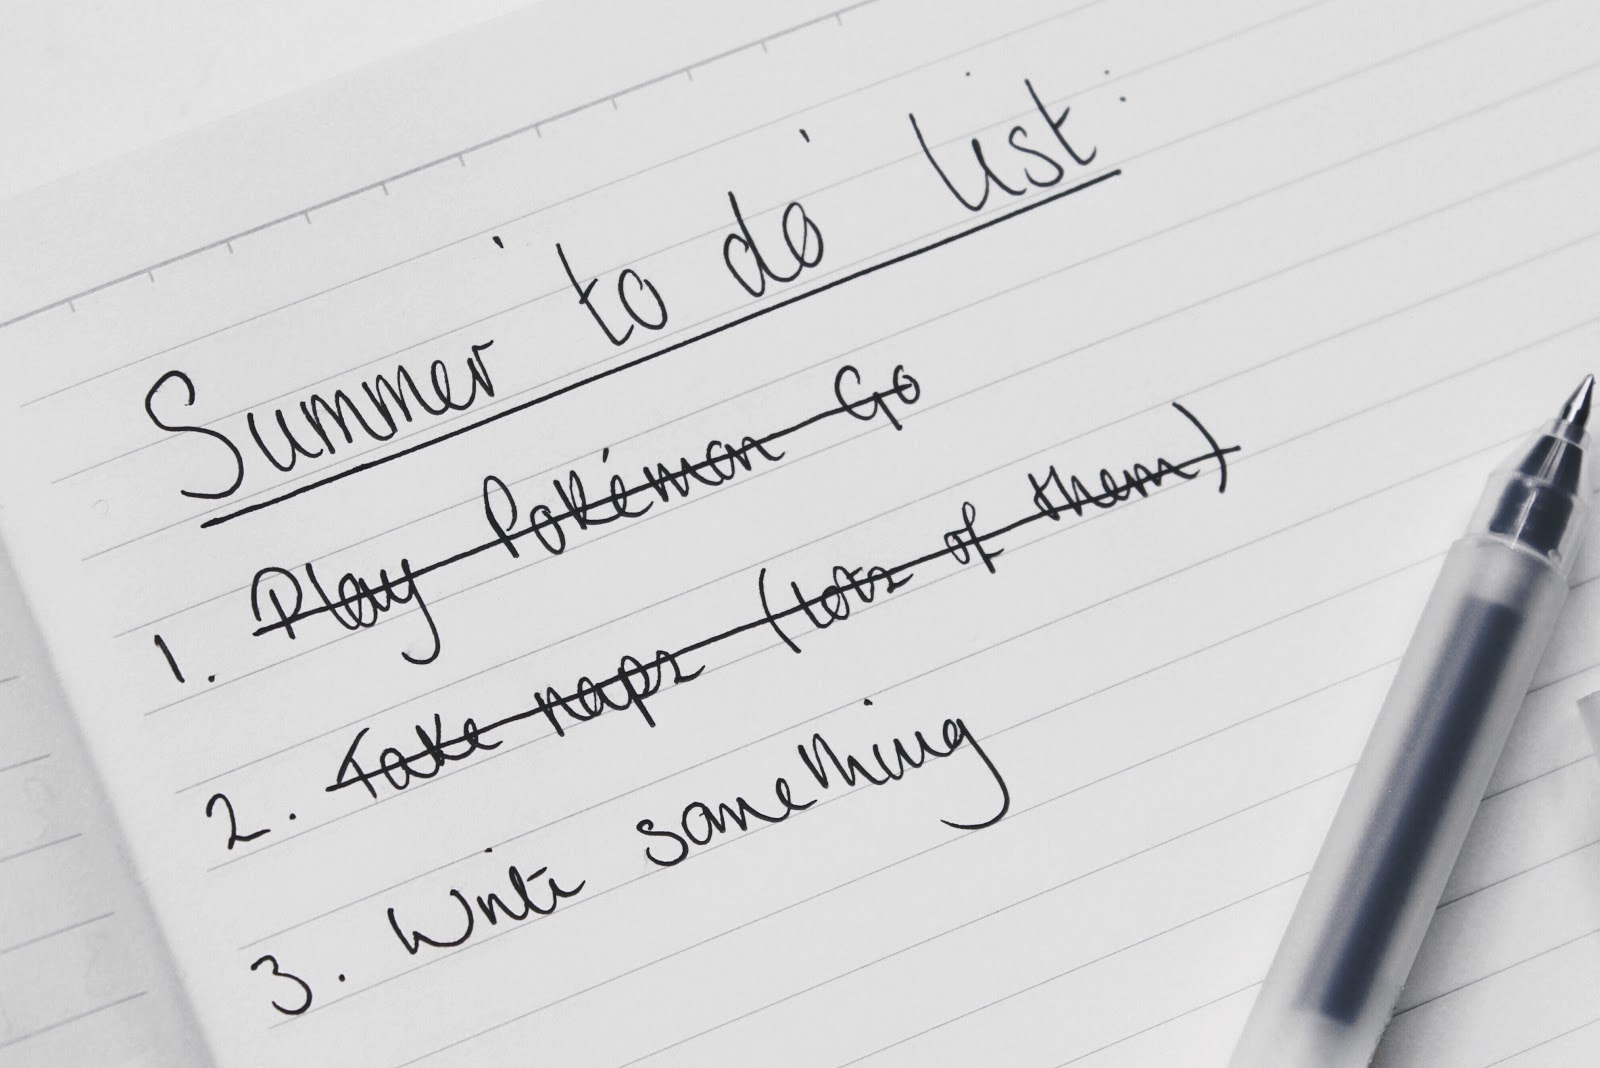 Summer 'to do' list:
1. Play Pokémon Go
2. Take naps (lots of them)
3. Write something